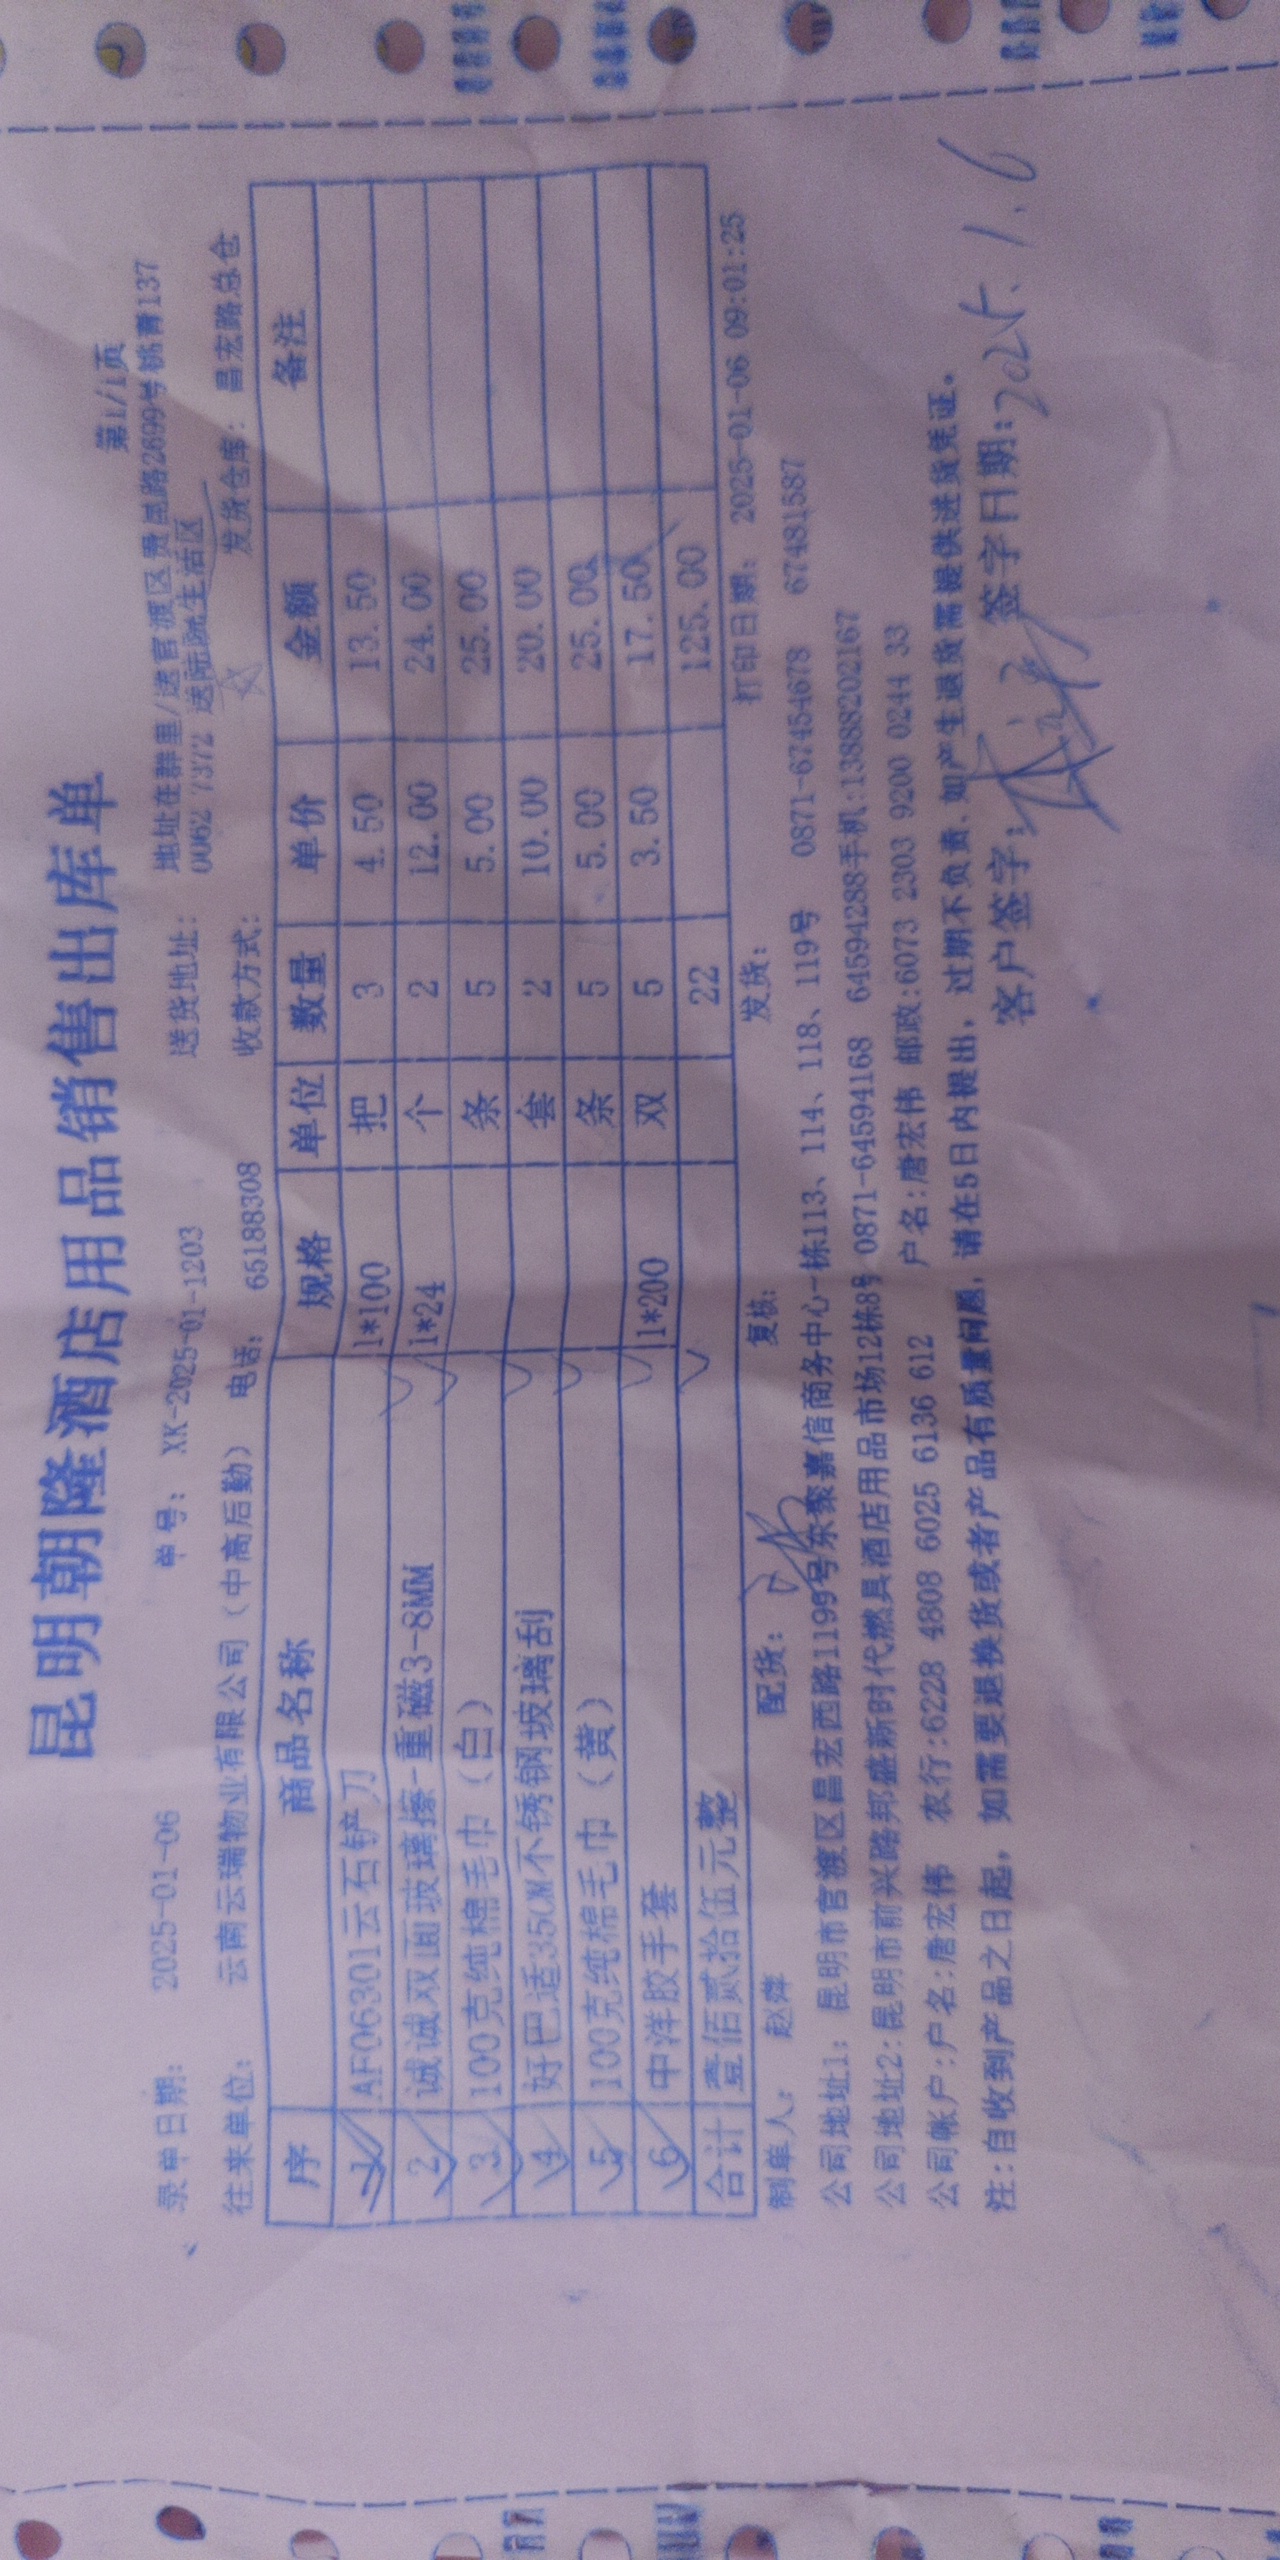 昆明朝隆酒店用品销售出库单
第1/1页
录单日期: 2025-01-06 单号: XK-2025-01-1203 送货地址: 地址在群里/送官渡区贵昆路2699号桃青137
0062 7372 送陆院生活区
往来单位: 云南云瑞物业有限公司（中高后勤） 电话: 65188308 收款方式: 发货仓库: 昌宏路总仓
序 商品名称 规格 单位 数量 单价 金额 备注
1 AF06301云石铲刀 1*100 把 3 4.50 13.50
2 诚诚双面玻璃擦-重磁3-8MM 1*24 个 2 12.00 24.00
3 100克纯棉毛巾（白） 条 5 5.00 25.00
4 好巴适35CM不锈钢玻璃刮 套 2 10.00 20.00
5 100克纯棉毛巾（黄） 条 5 5.00 25.00
6 中洋胶手套 1*200 双 5 3.50 17.50
合计 壹佰贰拾伍元整 22 125.00
制单人: 赵萍 配货: 复核: 发货: 打印日期: 2025-01-06 09:01:25
公司地址1: 昆明市官渡区昌宏西路1199号东聚嘉信商务中心一栋113、114、118、119号 0871-67454678 67481587
公司地址2:昆明市前兴路邦盛新时代燃具酒店用品市场12栋8号 0871-64594168 64594288手机:13888202167
公司帐户:户名:唐宏伟 农行:6228 4808 6025 6136 612 户名:唐宏伟 邮政:6073 2303 9200 0244 33
注:自收到产品之日起, 如需要退换货或者产品有质量问题, 请在5日内提出, 过期不负责.如产生退货需提供进货凭证。
客户签字: 签字日期: 2025.1.6